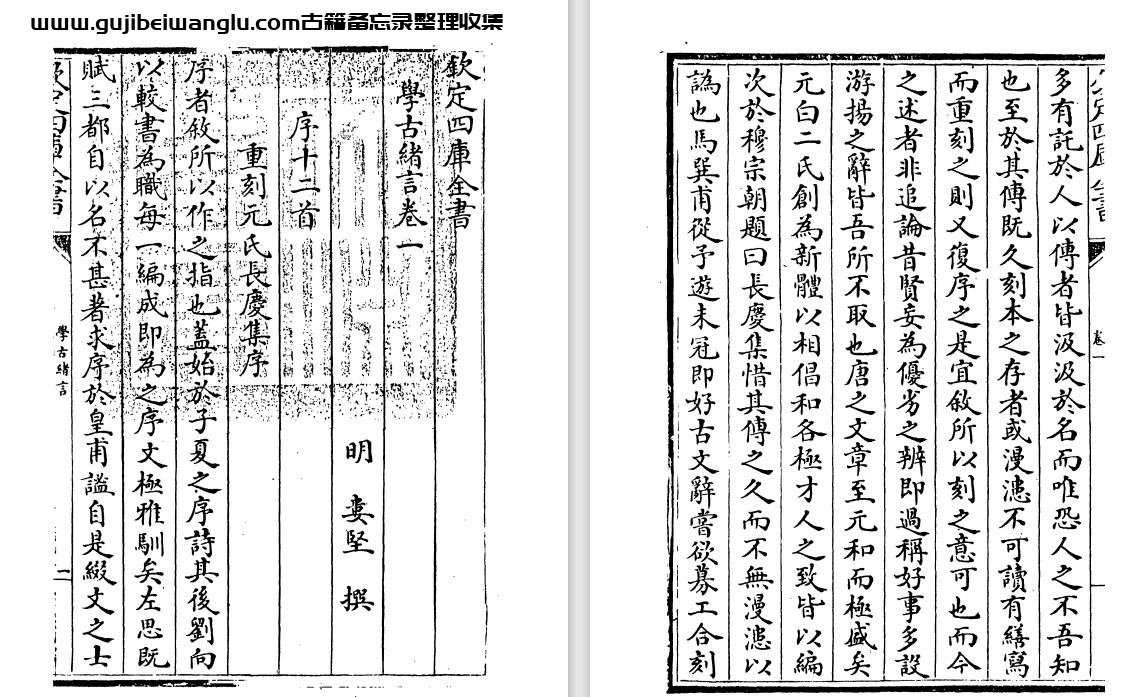 www.gujibeiwanglu.com古籍备忘录整理收集
欽定四庫全書
學古緒言卷一
明 婁堅 撰
序十二首
重刻元氏長慶集序
序者敘所以作之指也蓋始於子夏之序詩其後劉向
以較書為職每一編成即為之序文極雅馴矣左思既
賦三都自以名不甚著求序於皇甫謐自是綴文之士
學古緒言
卷一
多有託於人以傳者皆汲汲於名而唯恐人之不吾知
也至於其傳既久刻本之存者或漫漶不可讀有繕寫
而重刻之則又復序之是宜敘所以刻之意可也而今
之述者非追論昔賢妄為優劣之辨即過稱好事多設
游揚之辭皆吾所不取也唐之文章至元和而極盛矣
元白二氏創為新體以相倡和各極才人之致皆以編
次於穆宗朝題曰長慶集惜其傳之久而不無漫漶以
譌也馬巽甫從予遊未冠即好古文辭嘗欲募工合刻